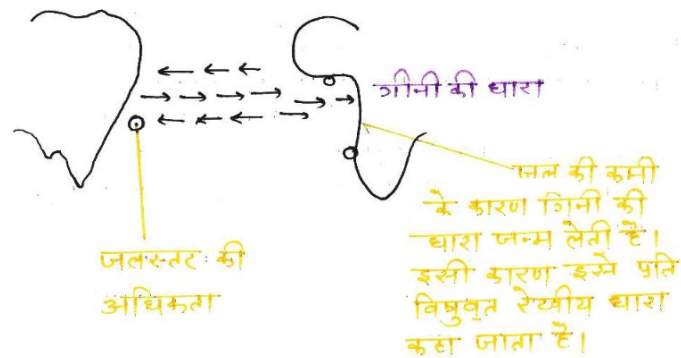 गीनी की धारा
जल की कमी
के कारण गिनी की
धारा जन्म लेती है।
इसी कारण इसे प्रति
विषुवत रेखीय धारा
कहा जाता है।
जलस्तर की
अधिकता